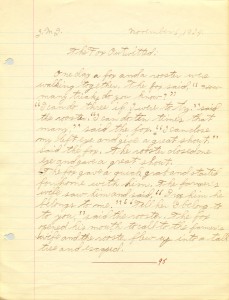 November 1, 1934
The Fox Outwitted.
One day a fox and a rooster were
walking together. The fox said "how
many tricks do you know?"
"I can do three if I were to try," said
the rooster. "I can do ten times that
many," said the fox. "I can close
my left eye and give a great shout."
said the fox. The rooster closed one
eye and gave a great shout.
The fox gave a quick grab and started
for home with him. The farmer's
wife saw him and said, "Drop him he
belongs to me." "Tell her I belong to
to you," said the rooster. The fox
opened his mouth to call to the farmer's
wife and the rooster flew up into a tall
tree and escaped.
95